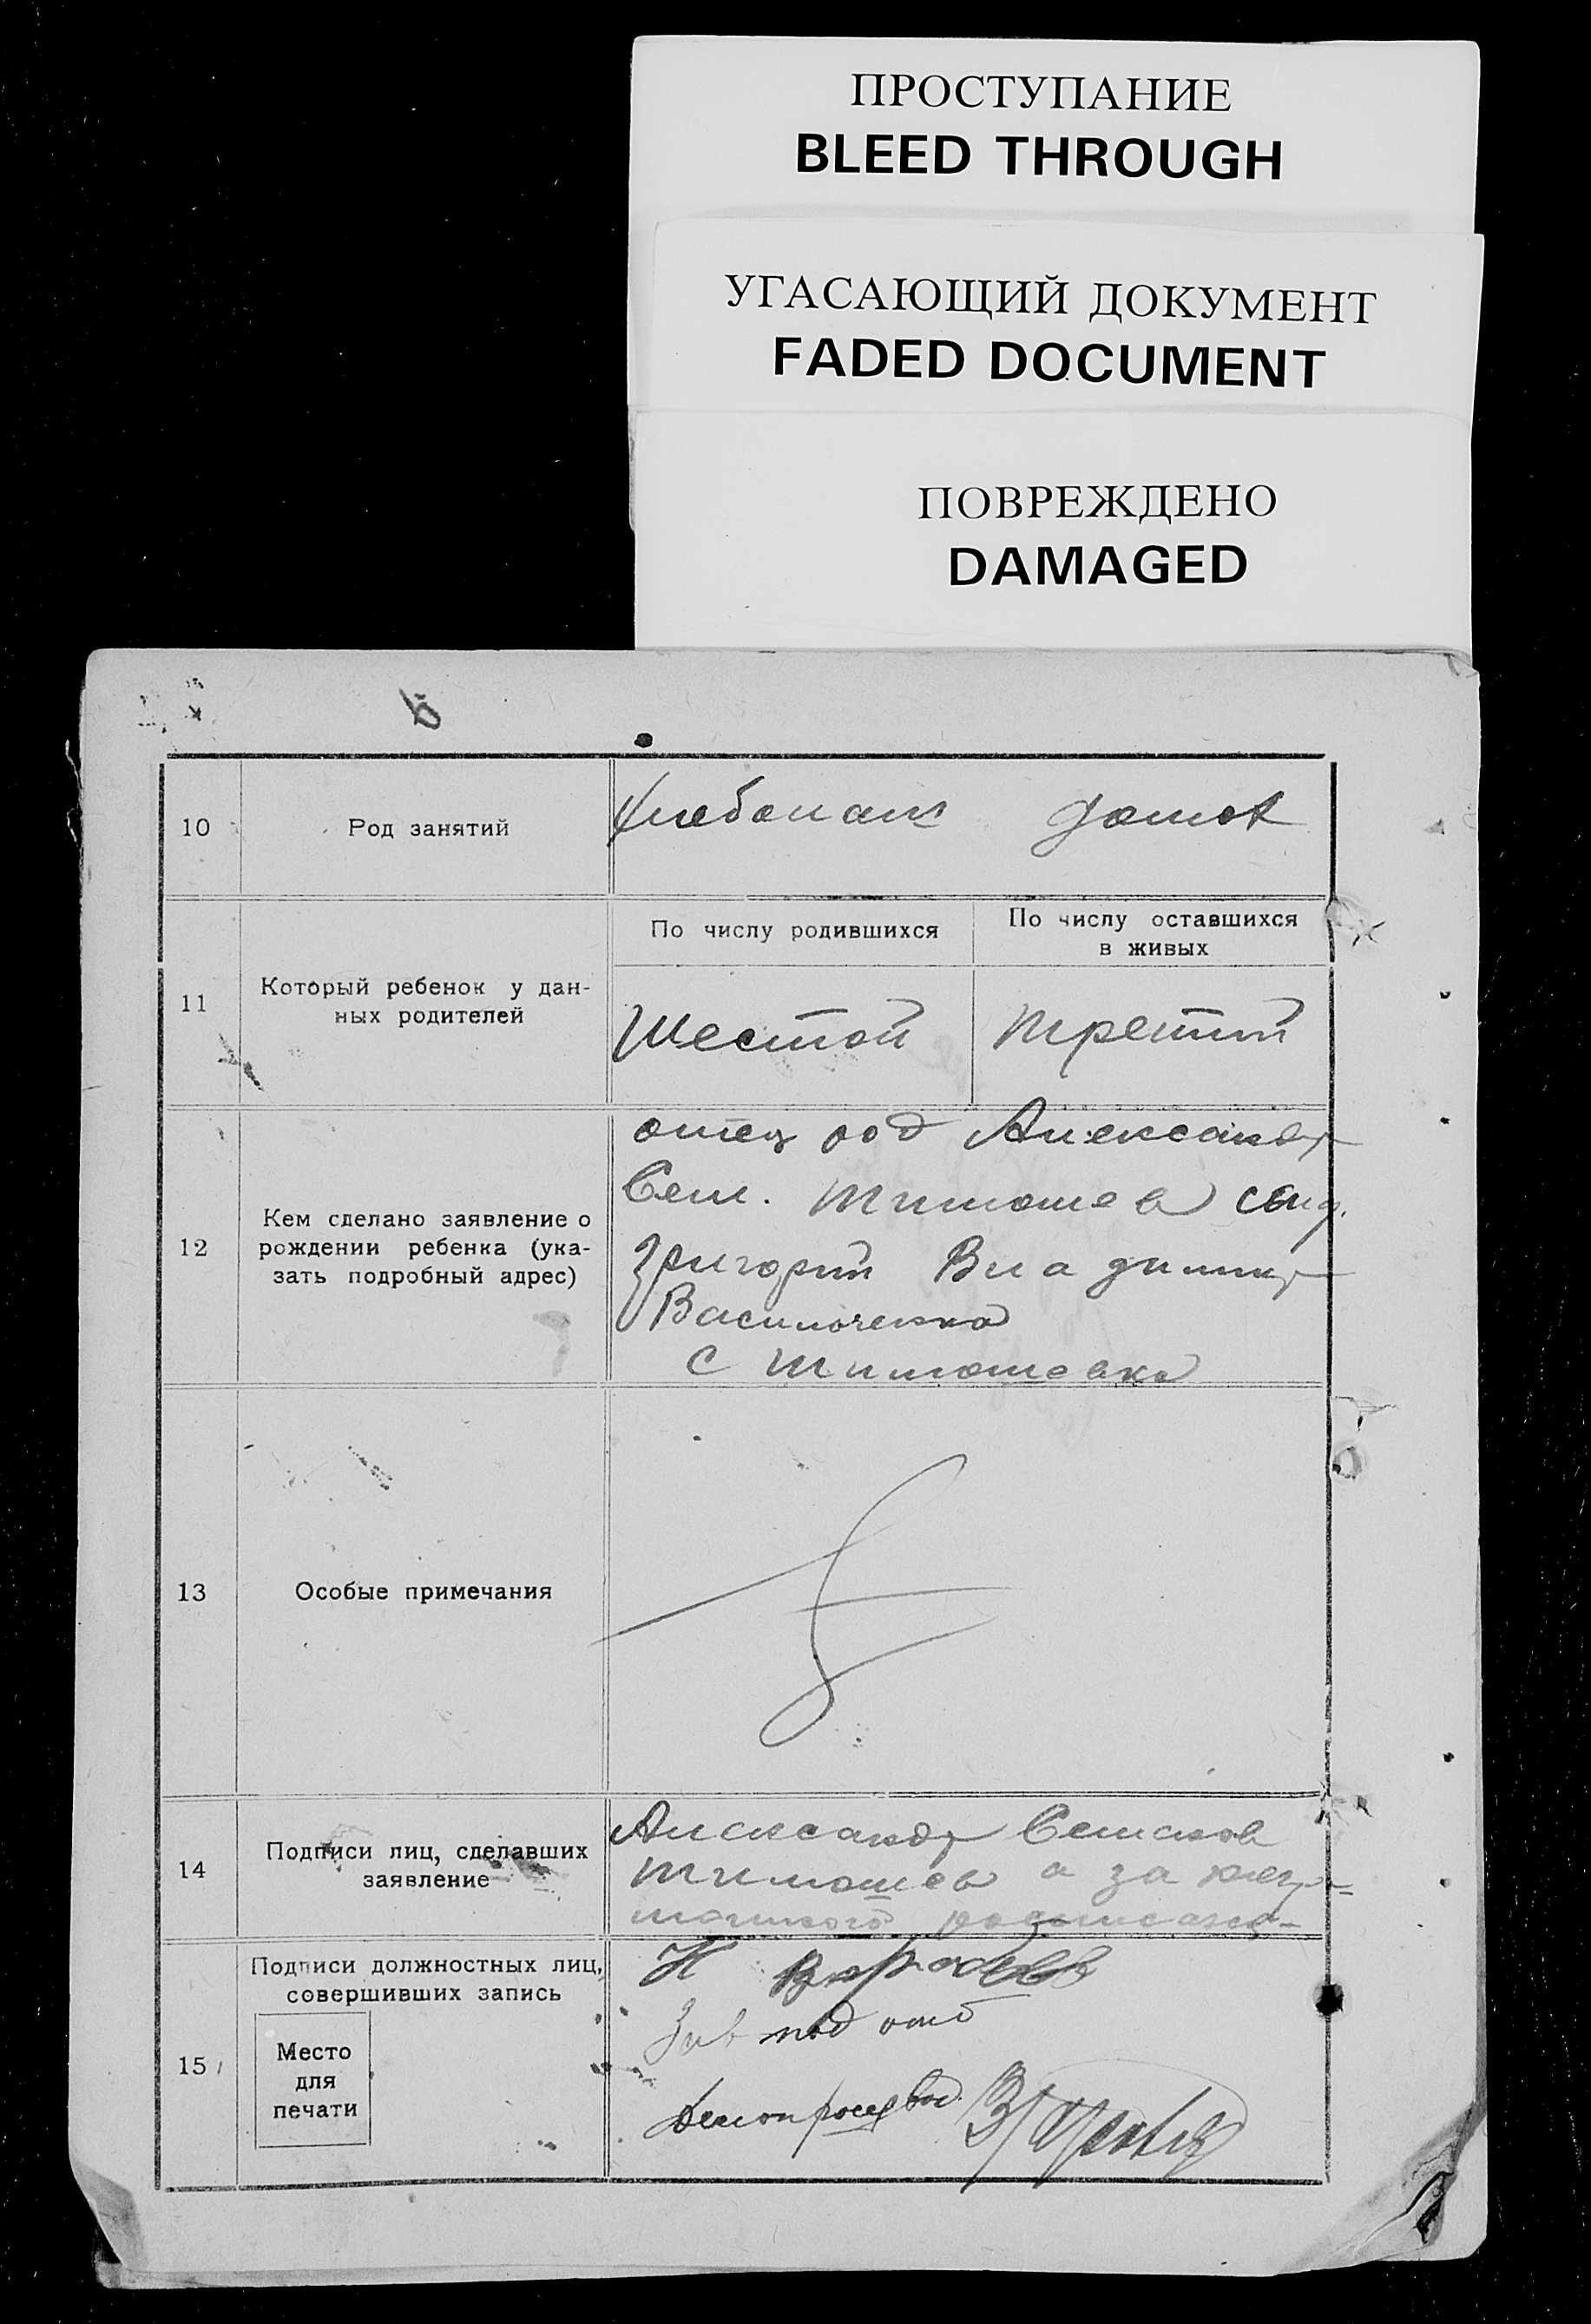 ПРОСТУПАНИЕ
BLEED THROUGH
УГАСАЮЩИЙ ДОКУМЕНТ
FADED DOCUMENT
ПОВРЕЖДЕНО
DAMAGED
10 Род занятий Хлебопаш домох
По числу родившихся По числу оставшихся
в живых
11 Который ребенок у дан-
ных родителей
Шестой третий
12 Кем сделано заявление о
рождении ребенка (ука-
зать подробный адрес)
отец Александр
Сем. Тимошев
Григорий Владимир
Василоченко
с Тимошевка
13 Особые примечания
14 Подписи лиц, сделавших
заявление
Александр Семенов
Тимошев а за негра-
мотного
15 Подписи должностных лиц,
совершивших запись
Место
для
печати
Зав под отд